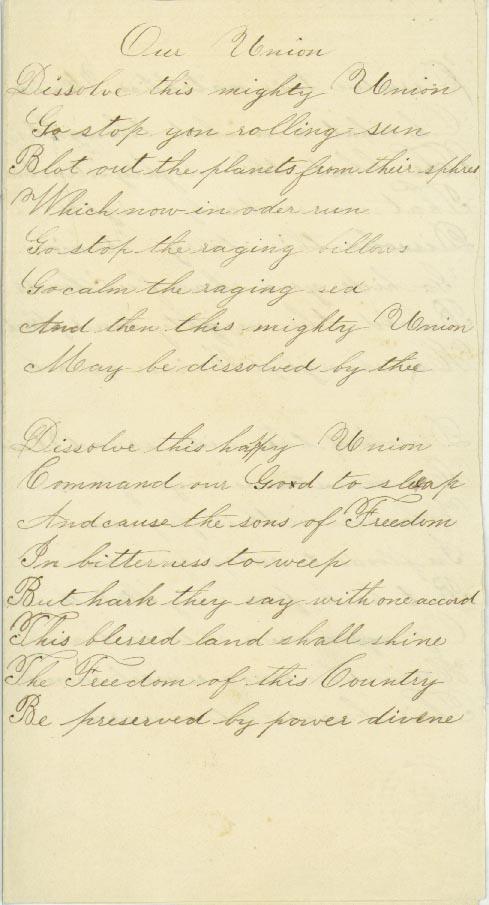 Our Union
Dissolve this mighty Union
Go stop yon rolling sun
Blot out the planets from their sphres
Which now in oder run
Go stop the raging billows
Go calm the raging sea
And then this mighty Union
May be dissolved by thee
Dissolve this happy Union
Command our God to sleap
And cause the sons of Freedom
In bitterness to weep
But hark they say with one accord
This blessed land shall shine
The Freedom of this Country
Be preserved by power divine